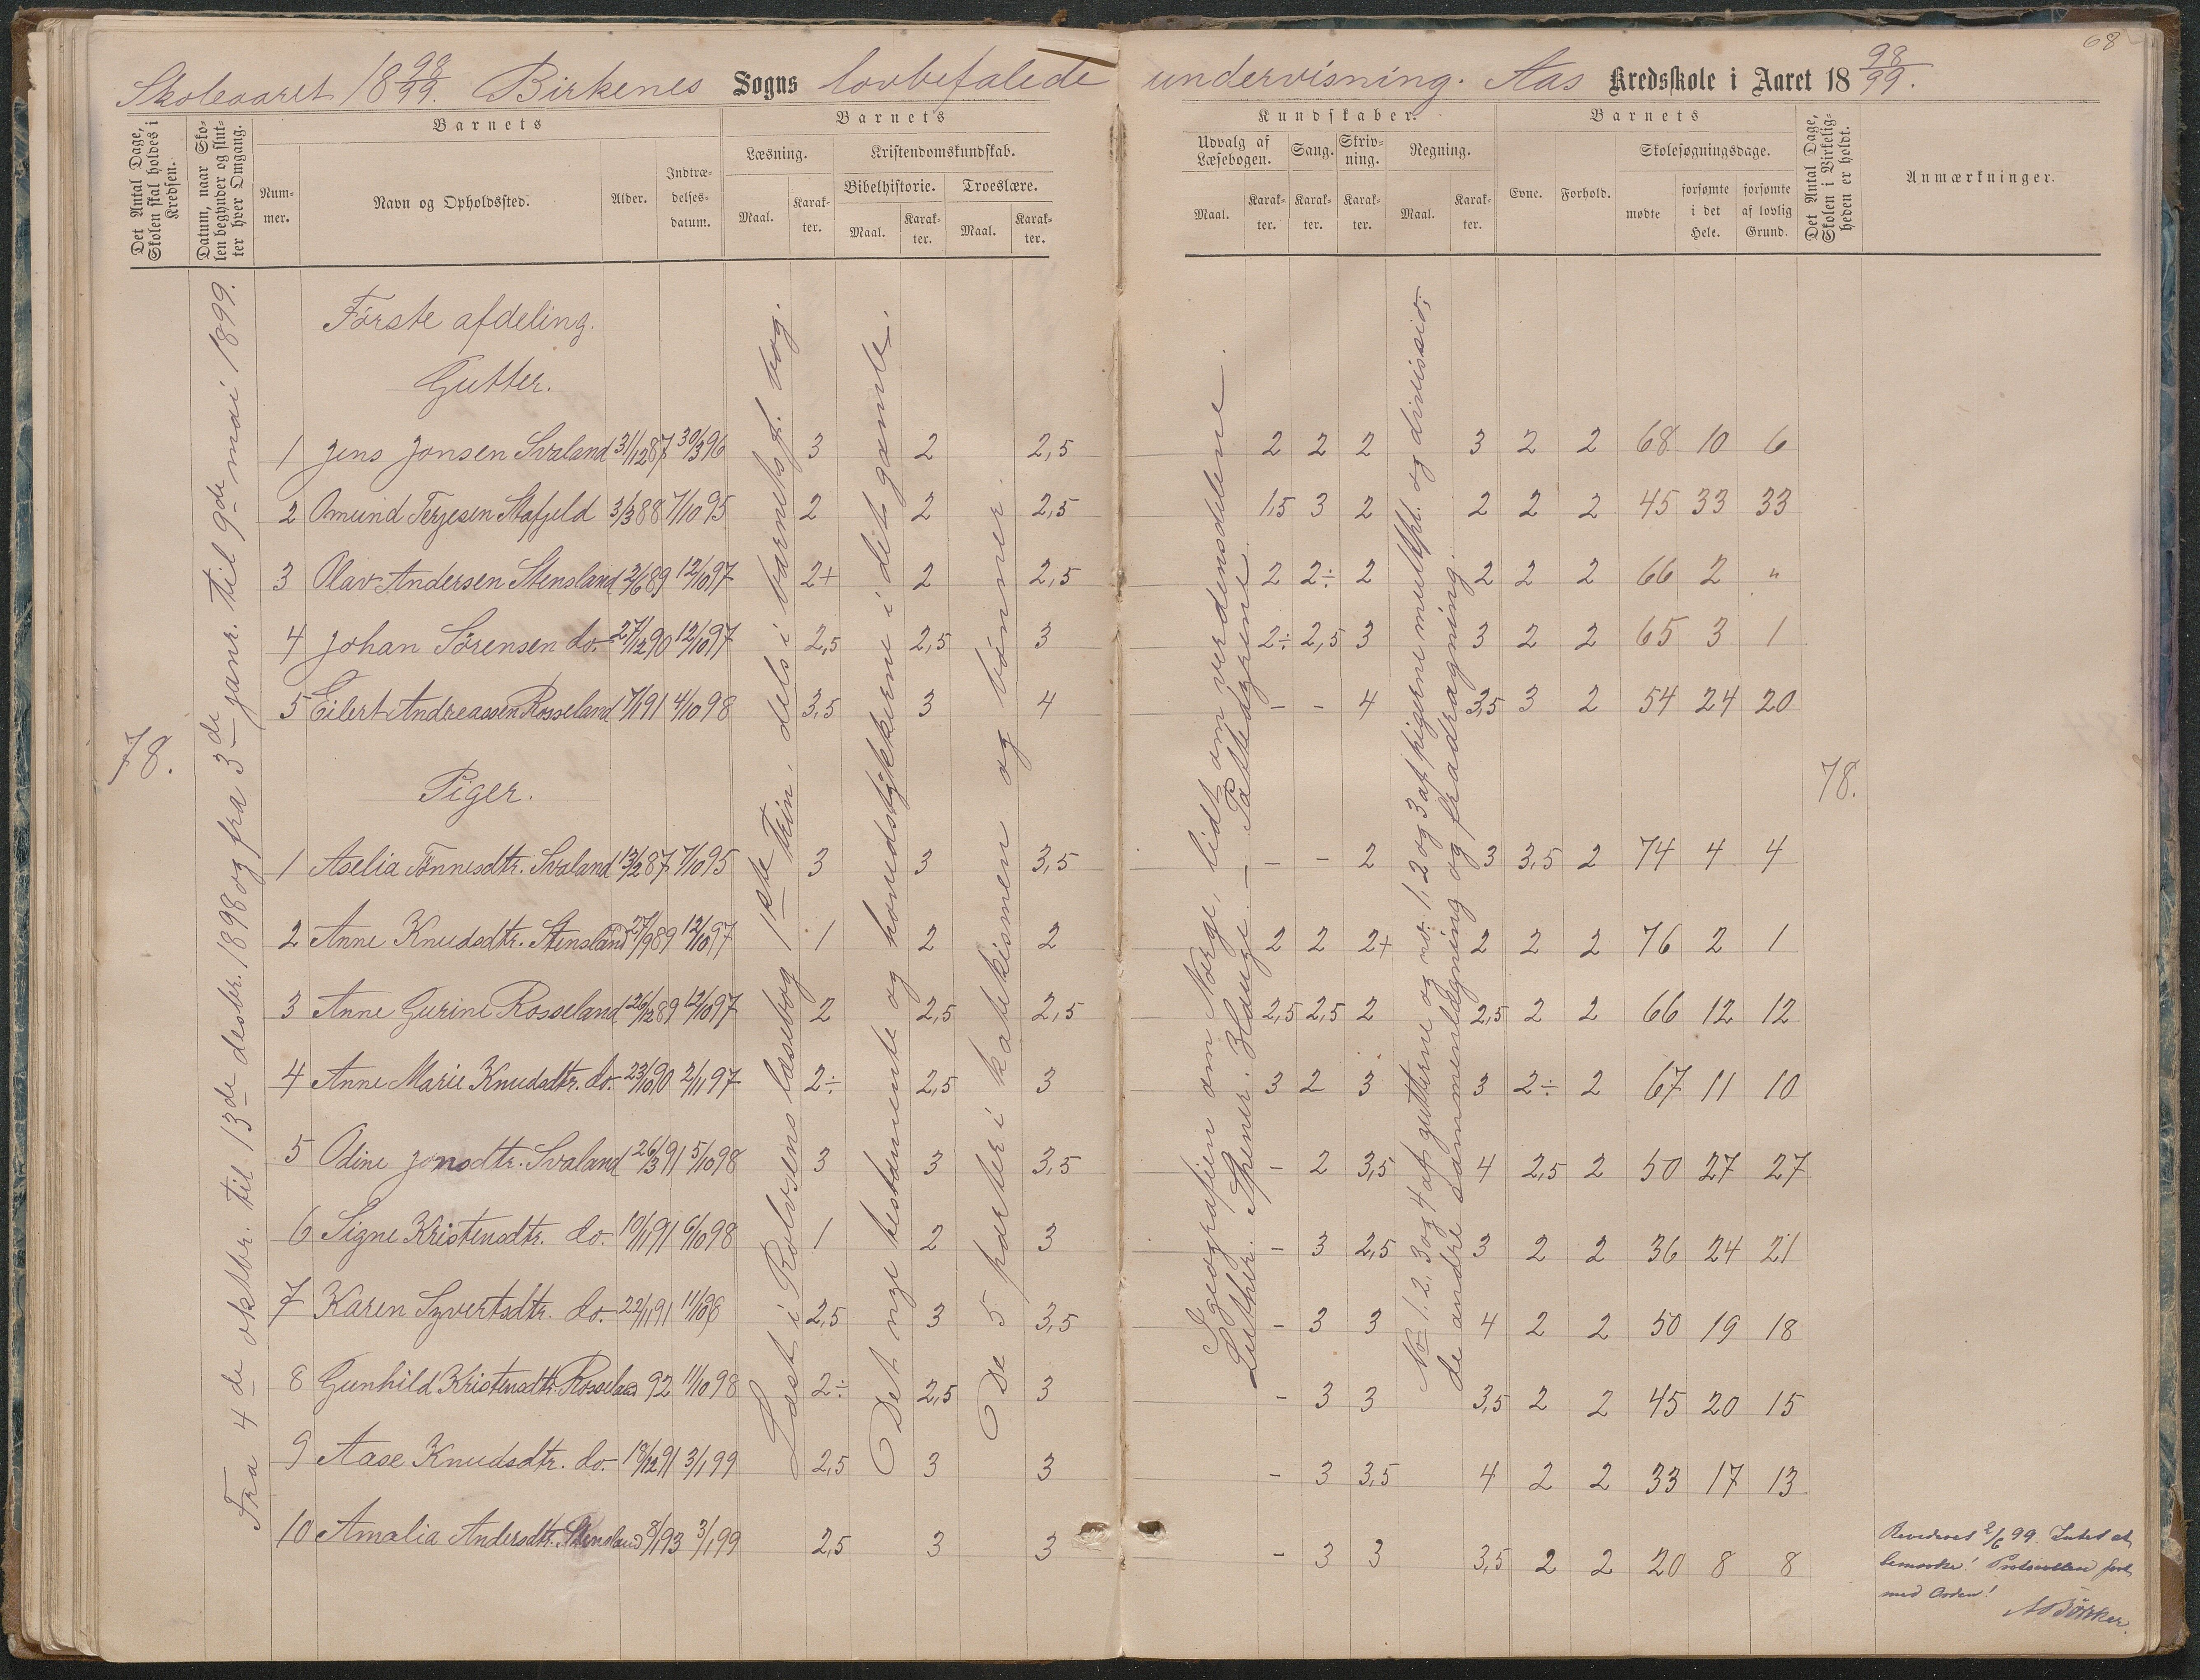 68
Skoleaaret 18 98/99. Birkenes Sogns lovbefalede undervisning. Aas Kredsskole i Aaret 18 98/99.
Det Antal Dage, Skolen skal holdes i Kredsen.
Datum, naar Skolen begynder og slutter hver Omgang.
Barnets
Nummer.
Navn og Opholdssted.
Alder.
Indtrædelsesdatum.
Barnets
Læsning.
Maal.
Karakter.
Kristendomskundskab.
Bibelhistorie.
Maal.
Karakter.
Troeslære.
Maal.
Karakter.
Kundskaber.
Udvalg af Læsebogen.
Maal.
Karakter.
Sang.
Karakter.
Skrivning.
Karakter.
Regning.
Maal.
Karakter.
Barnets
Evne.
Forhold.
Skolesøgningsdage.
mødte
forsømte i det Hele.
forsømte af lovlig Grund.
Det Antal Dage, Skolen i Virkeligheden er holdt.
Anmærkninger.
78.
Fra 4de oktbr. til 13de desbr. 1898 og fra 3de janr. til 9de mai 1899.
Læst i Rolvsens læsebog 1ste trin, dels i barnets f. bog.
Det nye testamente og hovedstykkerne i det gamle.
De 5 parter i katekismen og bønner.
I geografien om Norge, lidt om verdensdelene.
Luther. Spener. Hauge. — Patriagrene.
No 1, 2, 3 og 4 af gutterne og no. 1, 2 og 3 af pigerne multipl. og division,
de andre sammenlægning og fradragning.
Første afdeling.
Gutter.
1 Jens Jonsen Svaland 31/12 87 30/3 96 3 2 2,5 2 2 2 3 2 2 68 10 6
2 Omund Terjesen Stafjeld 3/3 88 7/10 95 2 2 2,5 1,5 3 2 2 2 2 45 33 33
3 Olav Andersen Stensland 2/6 89 12/10 97 2+ 2 2,5 2 2÷ 2 2 2 2 66 2 "
4 Johan Sörensen do. 27/12 90 12/10 97 2,5 2,5 3 2÷ 2,5 3 3 2 2 65 3 1
5 Eilert Andreassen Rosseland 17/1 91 4/10 98 3,5 3 4 - - 4 3,5 3 2 54 24 20
Piger.
78.
1 Aselia Tönnesdtr. Svaland 13/2 87 7/10 95 3 3 3,5 - - 2 3 3,5 2 74 4 4
2 Anne Knudsdtr. Stensland 27/9 89 12/10 97 1 2 2 2 2 2+ 2 2 2 76 2 1
3 Anne Gurine Rosseland 26/12 89 12/10 97 2 2,5 2,5 2,5 2,5 2 2,5 2 2 66 12 12
4 Anne Marie Knudsdtr. do. 23/10 90 2/11 97 2÷ 2,5 3 3 2 3 3 2÷ 2 67 11 10
5 Odine Jonsdtr. Svaland 26/3 91 5/10 98 3 3 3,5 - 2 3,5 4 2,5 2 50 27 27
6 Signe Kristensdtr. do. 10/11 91 6/10 98 1 2 3 - 3 2,5 3 2 2 36 24 21
7 Karen Syvertsdtr. do. 22/11 91 11/10 98 2,5 3 3,5 - 3 3 4 2 2 50 19 18
8 Gunhild Kristensdtr. Rosseland 92 11/10 98 2÷ 2,5 3 - 3 3 3,5 2 2 45 20 15
9 Aase Knudsdtr. do. 18/12 91 3/1 99 2,5 3 3 - 3 3,5 4 2 2 33 17 13
10 Amalia Andersdtr. Stensland 8/1 93 3/1 99 2,5 3 3 - 3 3 3,5 2 2 20 8 8
Revideret 2/6 99. Intet at
bemærke! Protocollen ført
med Orden!